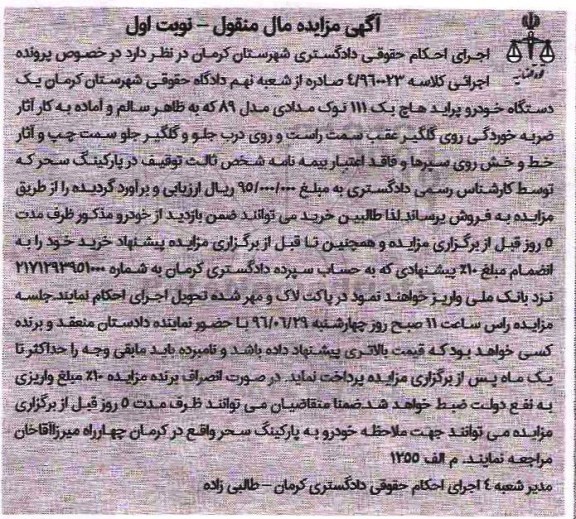 آگهی مزایده مال منقول – نوبت اول
اجرای احکام حقوقی دادگستری شهرستان کرمان در نظر دارد در خصوص پرونده
اجرائی کلاسه ۴/۹۶۰۰۲۳ صادره از شعبه نهم دادگاه حقوقی شهرستان کرمان یک
دستگاه خودرو پراید هاچ بک ۱۱۱ نوک مدادی مدل ۸۹ که به ظاهر سالم و آماده به کار آثار
ضربه خوردگی روی گلگیر عقب سمت راست و روی درب جلو و گلگیر جلو سمت چپ و آثار
خط و خش روی سپرها و فاقد اعتبار بیمه نامه شخص ثالث توقیف در پارکینگ سحر که
توسط کارشناس رسمی دادگستری به مبلغ ۹۵/۰۰۰/۰۰۰ ریال ارزیابی و برآورد گردیده را از طریق
مزایده به فروش برساند.لذا طالبین خرید می توانند ضمن بازدید از خودرو مذکور ظرف مدت
۵ روز قبل از برگزاری مزایده و همچنین تا قبل از برگزاری مزایده پیشنهاد خرید خود را به
انضمام مبلغ ۱۰٪ پیشنهادی که به حساب سپرده دادگستری کرمان به شماره ۲۱۷۱۲۹۳۹۵۱۰۰۰
نزد بانک ملی واریز خواهند نمود در پاکت لاک و مهر شده تحویل اجرای احکام نمایند.جلسه
مزایده راس ساعت ۱۱ صبح روز چهارشنبه ۹۶/۰۶/۲۹ با حضور نماینده دادستان منعقد و برنده
کسی خواهد بود که قیمت بالاتری پیشنهاد داده باشد و نامبرده باید مابقی وجه را حداکثر تا
یک ماه پس از برگزاری مزایده پرداخت نماید. در صورت انصراف برنده مزایده ۱۰٪ مبلغ واریزی
به نفع دولت ضبط خواهد شد.ضمنا متقاضیان می توانند ظرف مدت ۵ روز قبل از برگزاری
مزایده می توانند جهت ملاحظه خودرو به پارکینگ سحر واقع در کرمان چهارراه میرزاآقاخان
مراجعه نمایند. م الف ۱۲۵۵
مدیر شعبه ۴ اجرای احکام حقوقی دادگستری کرمان – طالبی زاده